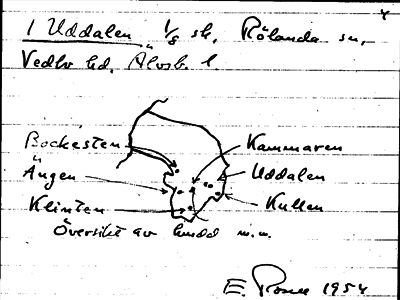 1 Uddalen 1/8 sk, Rölanda sn,
Vedbo hd. Älvsb. l.
Bockesten
Ängen
Klinten
Kammaren
Uddalen
Kullen
Översikt av m.m.
E. 1954